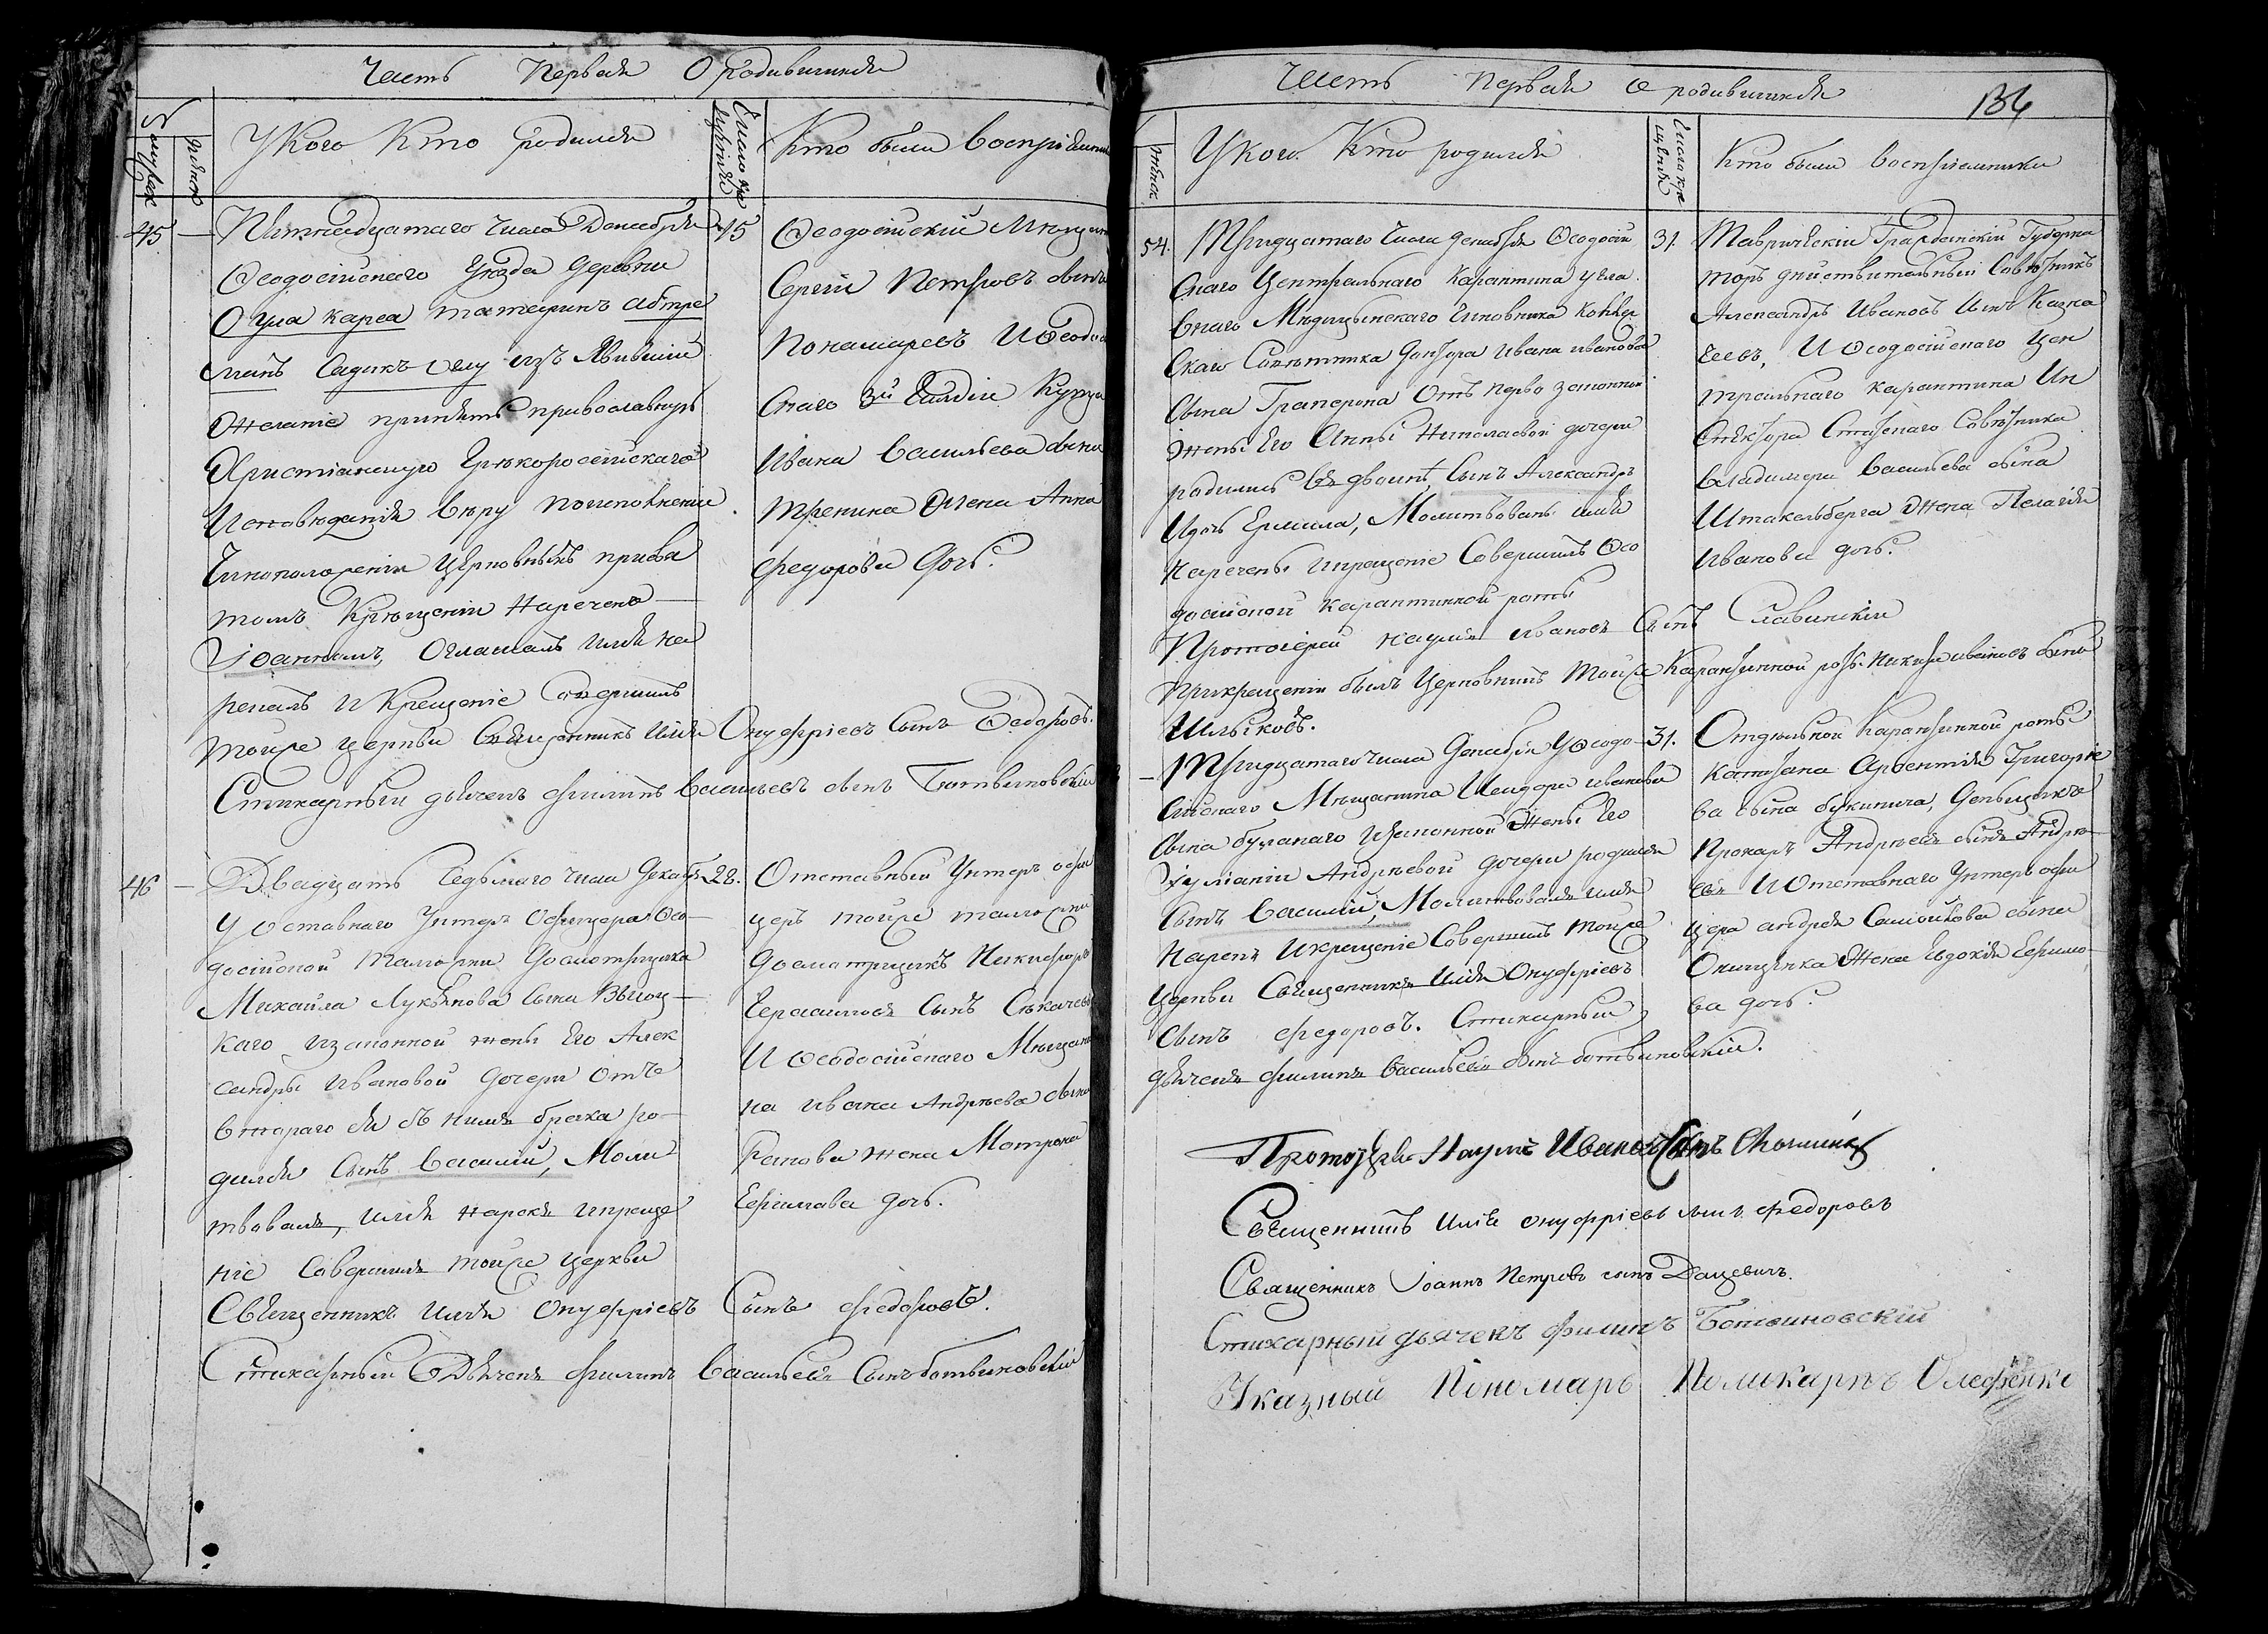 Часть Первая О родившихся
У Кого Кто родился
Кто были Восприемни
45 — Пятнадцатаго Числа Декабря 15
Ѳеодосійскаго Уезда Деревни
Огуза карса татаринъ Абдре
манъ Садикъ оглу изъ Явившій
желаніе принять православную
Христіанскую Грекоросійскаго
Исповеданія веру по исполненіи
Чиноположенія Церковныхъ правил
томъ Крещеніи Нареченъ
Іоанномъ, Оглашалъ Имя на
рекалъ и Крещеніе Совершилъ
тойже церкви Священникъ Илія Онуфріевъ Сынъ Ѳедоровъ.
Стихарный дьячекъ Филипъ Васильевъ сынъ Ботвиновскій
Ѳеодосійскій Мещан
Сергій Петровъ сынъ
Понамаревъ и Ѳеодос
скаго 3й Гилдіи Купца
Ивана Васильева сына
Тренина Жена Анна
Федорова Дочь.
46 — Двадцать Седьмаго числа Декаб. 28.
У оставнаго Унтеръ Офицера Ѳео-
досійской таможни Досмотрщика
Михаила Лукьянова Сына Высоц-
каго изаконной жены Его Алек
сандры Ивановой Дочери отъ
втораго ея съ нимъ брака ро-
дился Сынъ Василій, Моли
твовалъ, имя нарекъ и креще
ніе Совершилъ тойже церкви
Священникъ Илія Онуфріевъ Сынъ Федоровъ.
Стихарный Дьячекъ Филипъ Васильевъ Сынъ Ботвиновскій
Отставный Унтеръ офи
церъ тойже таможни
Досмотрщикъ Никифоръ
Герасимовъ Сынъ Секачевъ
и Ѳеодосійскаго Мещани
на Ивана Андреева сына
Репова жена Матрона
Ефимова дочь.
Часть Первая О родившихся
136
У Кого Кто родился
Кто были Восприемники
54. Тридцатаго Числа декабря Ѳеодосій 31.
скаго Центральнаго Карантина у гла
внаго Медицынскаго Чиновника Коллеж
скаго Советника Доктора Ивана Иванова
сына Граперона Отъ перво законной
жены Его Анны Николаевой дочери
родились въ двоинѣ, Сынъ Александръ
И дочь Ермила, Молитвовалъ имя
Наречены и крещеніе Совершилъ Ѳео
досійской Карантинной роты
Протоіерей Наумъ Ивановъ Сынъ Славинскій
При крещеніи былъ Церковникъ тойже Карантинной роты Никита Ивановъ сынъ
Шлыковъ.
Таврическій Гражданскій Губерна
торъ действительный Советникъ
Александръ Ивановъ сынъ Казна
чеевъ, И Ѳеодосійскаго Цен
тральнаго карантина Ин
спектора Статскаго Советника
Владимера Васильева сына
Штакельберга Жена Пелагія
Иванова дочь.
— Тридцатаго Числа Декабря У Ѳеодо- 31.
сійскаго Мещанина Исидора Иванова
сына Булгаго изаконной Жены Его
Іуліаніи Андреевой дочери родился
Сынъ Василій, Молитвовалъ имя
Нарекъ И крещеніе Совершилъ тойже
Церкви Священникъ Илія Онуфріевъ
сынъ Федоровъ. Стихарный
дьячекъ Филипъ Васильевъ сынъ Ботвиновскій.
Отдельной Карантинной роты
Капитана Арсентія Григорие
ва сына Букинича, Деньщикъ
Прокаръ Андреевъ сынъ Андре
евъ И Отставнаго Унтеръ офи
цера Андрея Самойлова сына
Онищенка Жена Евдокія Ефимо-
ва дочь.
Протоіерей Наумъ Ивановъ Сынъ
Священникъ Илія Онуфріевъ сынъ Федоровъ
Священникъ Іоаннъ Петровъ сынъ Дацевичъ.
Стихарный дьячекъ Филипъ Ботвиновскій
Указный Пономарь Поликарпъ Олефенко